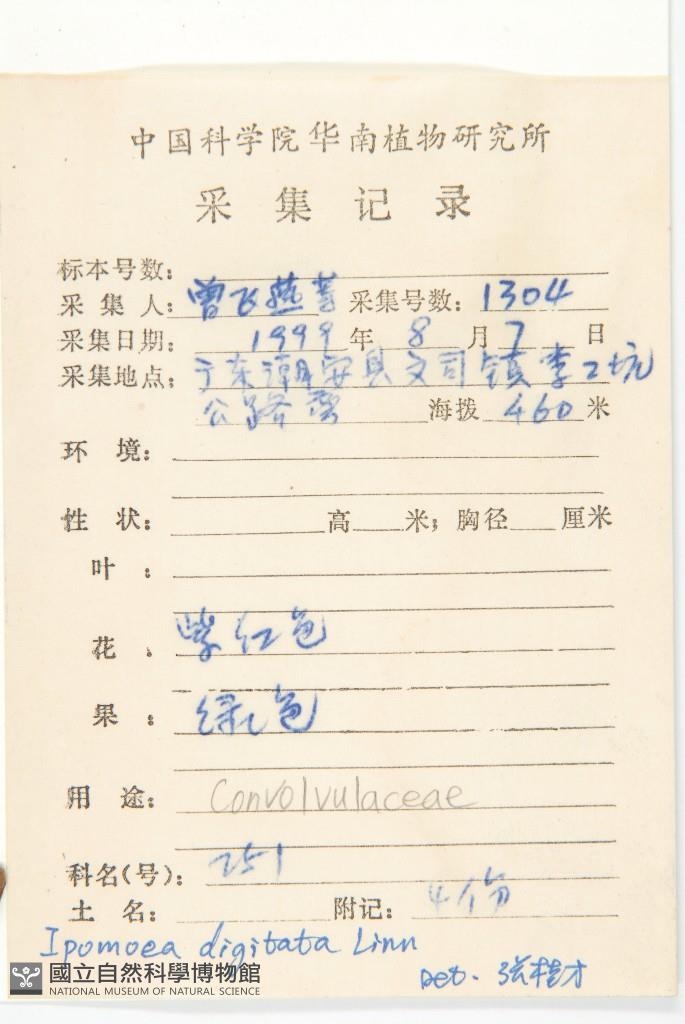 中国科学院华南植物研究所
采集记录
标本号数:
采集人: 曾飞燕等 采集号数: 1304
采集日期: 1999 年 8 月 7 日
采集地点: 广东潮安县文司镇李工坑
公路旁 海拨 460 米
环境:
性状: 高 米; 胸径 厘米
叶:
花: 紫红色
果: 绿色
用途: Convolvulaceae
科名(号): 251
土名: 附记: 4份
Ipomoea digitata Linn
Det. 张桂才
國立自然科學博物館
NATIONAL MUSEUM OF NATURAL SCIENCE